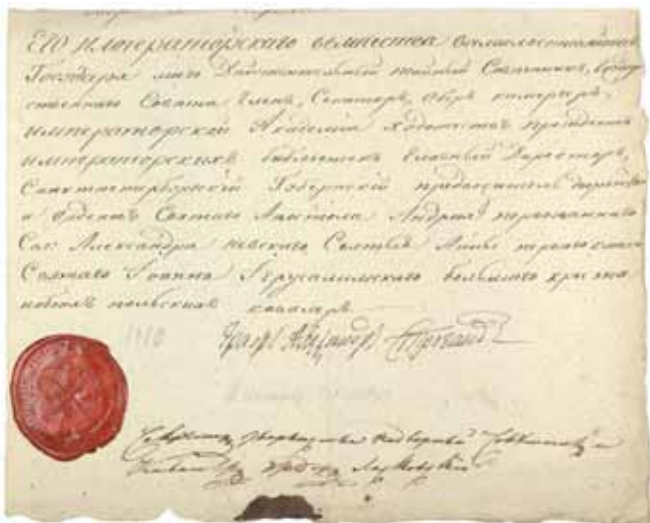 ЕГО Императорскаго величества всемилостивѣйшаго
Государя моего Дѣйствительный тайный Совѣтникъ, Государ
ственнаго Совѣта Членъ, Сенаторъ, Оберъ камергеръ,
императорской Академіи Художествъ президентъ
императорскихъ библіотекъ Главный Директоръ,
Санктпетербургскій Губернскій предводитель дворянства
и Орденовъ Святаго Апостола Андрея первозваннаго
Свя: Александра невскаго, Святыя Анны перваго класса
Святаго Іоанна Іерусалимскаго большаго креста
и польскихъ кавалеръ.
Графъ Александръ Строганов
1810
Секретарь дворянства Надворный Совѣтникъ и
Кавалеръ